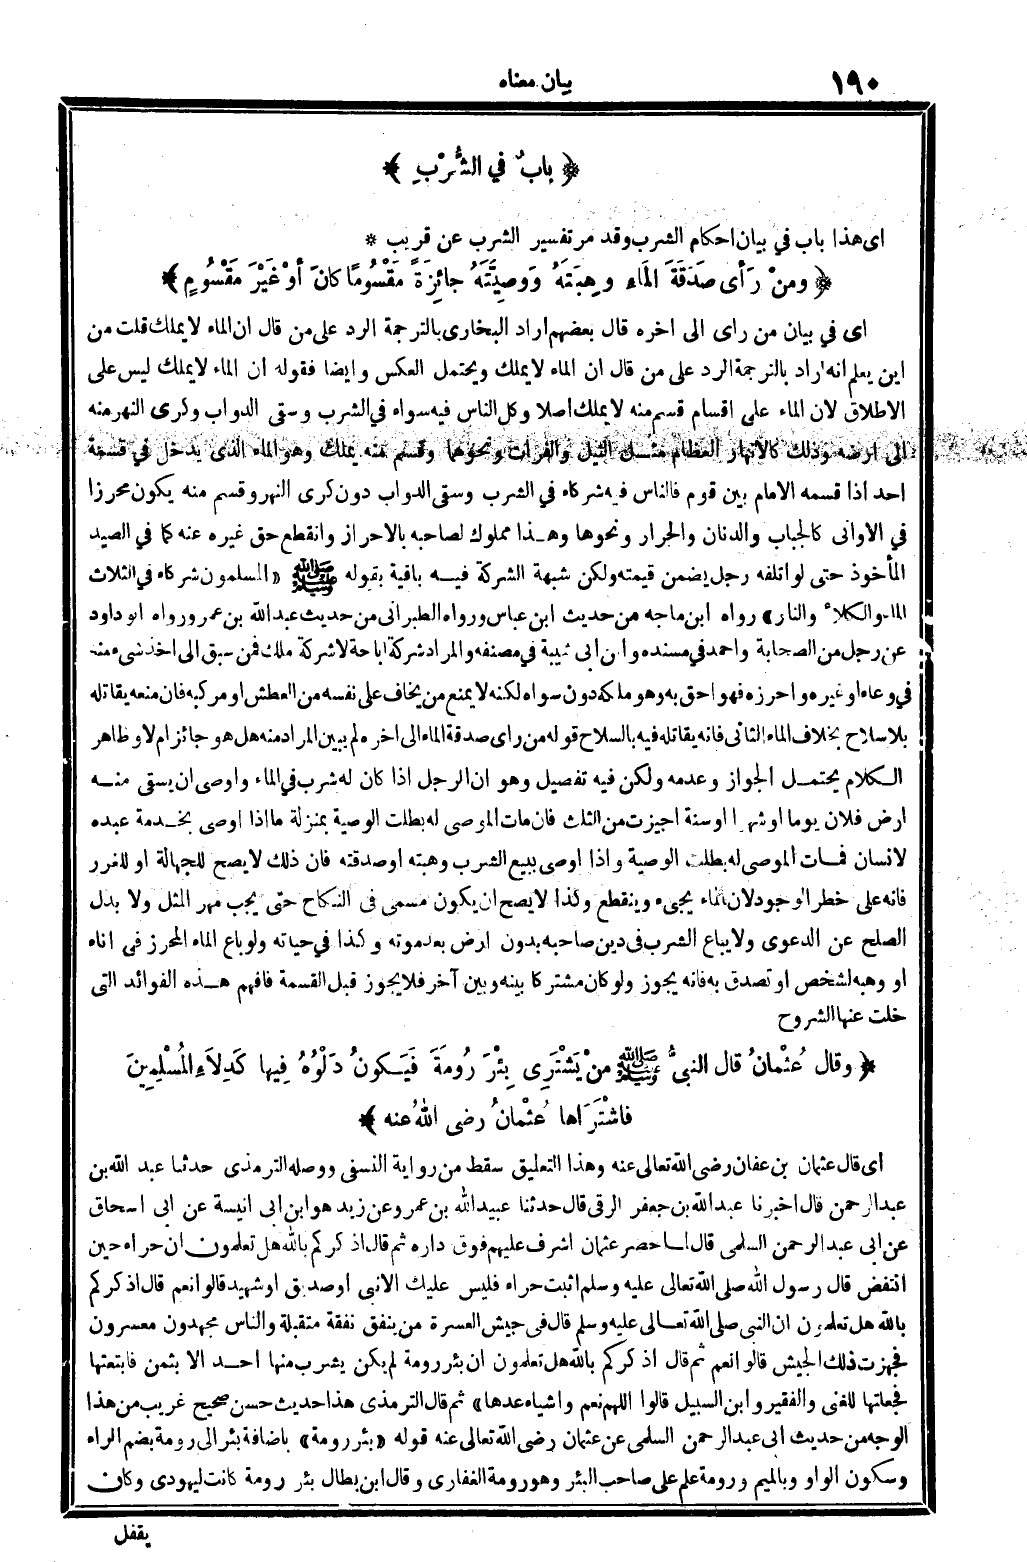 ١٩٠
بيان معناه
﴿ بابٌ في الشُّرْبِ ﴾
اى هذا باب في بيان احكام الشرب وقد مر تفسير الشرب عن قريب *
﴿ ومنْ رَأى صَدَقَةَ المَاءِ وهِبَتَهُ ووَصِيَّتَهُ جائِزَةً مَقْسُومًا كانَ أوْ غَيْرَ مَقْسُومٍ ﴾
اى في بيان من راى الى اخره قال بعضهم اراد البخارى بالترجمة الرد على من قال ان الماء لا يملك قلت من
اين يعلم انه اراد بالترجمة الرد على من قال ان الماء لا يملك ويحتمل العكس وايضا فقوله ان الماء لا يملك ليس على
الاطلاق لان الماء على اقسام قسم منه لا يملك اصلا وكل الناس فيه سواء في الشرب وسقى الدواب وكرى النهر منه
الى ارضه وذلك كالانهار العظام مثـل النيل والفرات ونحوها وقسم منه يملك وهو الماء الذى يدخل في قسمة
احد اذا قسمه الامام بين قوم فالناس فيه شركاء في الشرب وسقى الدواب دون كرى النهر وقسم منه يكون محرزا
في الاوانى كالجباب والدنان والجرار ونحوها وهـذا مملوك لصاحبه بالاحراز وانقطع حق غيره عنه كما في الصيد
المأخوذ حتى لو اتلفه رجل يضمن قيمته ولكن شبهة الشركة فيـه باقية بقوله ﷺ «المسلمون شركاء في الثلاث
الماء والكلاء والنار» رواه ابن ماجه من حديث ابن عباس ورواه الطبرانى من حديث عبدالله بن عمر ورواه ابو داود
عن رجل من الصحابة واحمد في مسنده وابن ابى شيبة في مصنفه والمراد شركة اباحة لا شركة ملك فمن سبق الى اخذ شىء منه
في وعاء او غيره واحرزه فهو احق به وهو ملكه دون سواه لكنه لا يمنع من يخاف على نفسه من العطش او مركبه فان منعه يقاتله
بلا سلاح بخلاف الماء الثانى فانه يقاتله فيه بالسلاح قوله من راى صدقة الماء الى اخره لم يبين المراد منه هل هو جائز ام لا وظاهر
الـكلام يحتمـل الجواز وعدمه ولكن فيه تفصيل وهو ان الرجل اذا كان له شرب في الماء واوصى ان يسقى منـه
ارض فلان يوما او شهرا او سنة اجيزت من الثلث فان مات الموصى له بطلت الوصية بمنزلة ما اذا اوصى بخـدمة عبده
لانسان فمـات الموصى له بطلت الوصية واذا اوصى ببيع الشرب وهبته او صدقته فان ذلك لا يصح للجهالة او للغرر
فانه على خطر الوجود لان الماء يجىء وينقطع وكذا لا يصح ان يكون مسمى فى النكاح حتى يجب مهر المثل ولا بدل
الصلح عن الدعوى ولا يباع الشرب فى دين صاحبه بدون ارض بعد موته وكذا في حياته ولو باع الماء المحرز فى اناء
او وهبه لشخص او تصدق به فانه يجوز ولو كان مشتركا بينه وبين آخر فلا يجوز قبل القسمة فافهم هـذه الفوائد التى
خلت عنها الشروح
﴿ وقال عُثْمانُ قال النبىُّ ﷺ منْ يَشْتَرِى بِئْرَ رُومَةَ فَيَـكونُ دَلْوُهُ فِيها كَدِلاَءِ المُسْلِمِينَ
فاشْتَرَاها عُثْمانُ رضى اللهُ عنه ﴾
اى قال عثمان بن عفان رضى الله تعالى عنه وهذا التعليق سقط من رواية النسفى ووصله الترمذى حدثنا عبد الله بن
عبدالرحمن قال اخبرنا عبدالله بن جعفر الرقى قال حدثنا عبيدالله بن عمرو عن زيد هو ابن ابى انيسة عن ابى اسحاق
عن ابى عبد الرحمن السلمى قال لمـا حصر عثمان اشرف عليهم فوق داره ثم قال اذكركم بالله هل تعلمون ان حراء حين
انتفض قال رسول الله صلى الله تعالى عليه وسلم اثبت حراء فليس عليك الانبى او صديق او شهيد قالوا نعم قال اذكركم
بالله هل تعلمون ان النبى صلى الله تعـالى عليه وسلم قال فى جيش العسرة من ينفق نفقة متقبلة والناس مجهدون معسرون
فجهزت ذلك الجيش قالوا نعم ثم قال اذكركم بالله هل تعلمون ان بئر رومة لم يكن يشرب منها احـد الا بثمن فابتعتها
فجعلتها للغنى والفقير وابن السبيل قالوا اللهم نعم واشياء عدها» ثم قال الترمذى هذا حديث حسن صحيح غريب من هذا
الوجه من حديث ابى عبدالرحمن السلمى عن عثمان رضى الله تعالى عنه قوله «بئر رومة» باضافة بئر الى رومة بضم الراء
وسكون الواو وبالميم ورومة علم على صاحب البئر وهو رومة الغفارى وقال ابن بطال بئر رومة كانت ليهودى وكان
يقفل